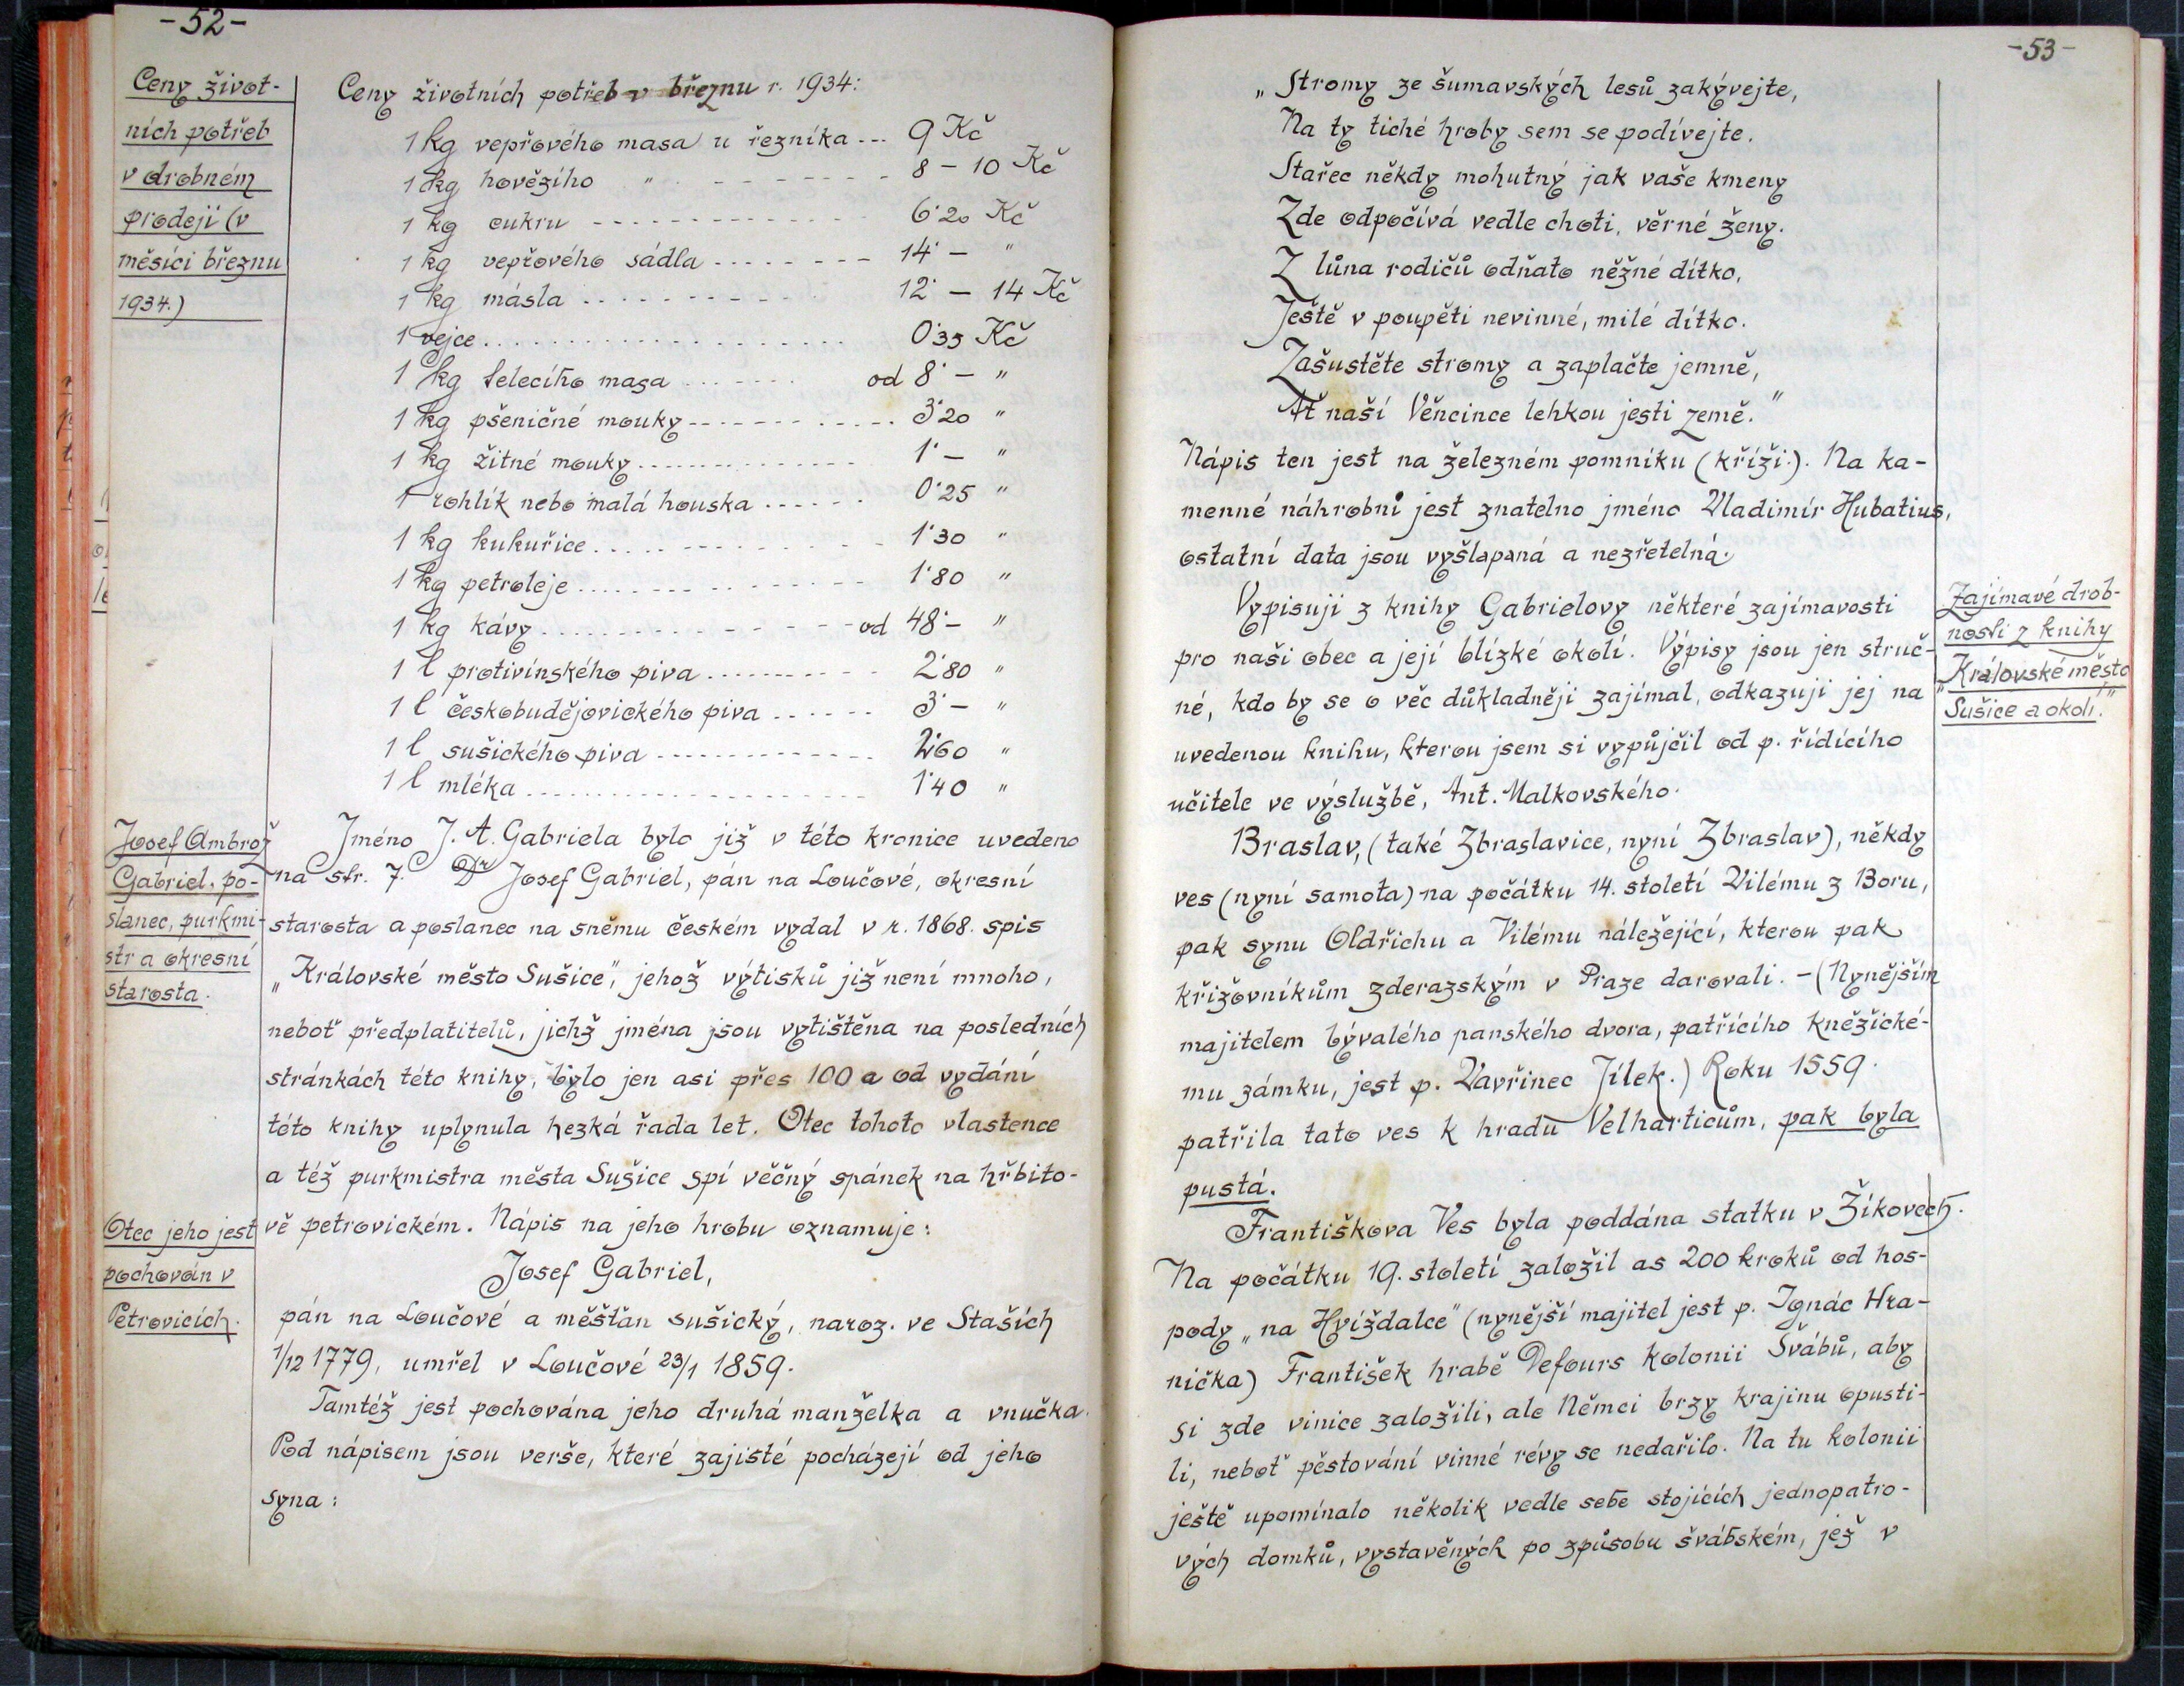 -52-
Ceny život-
ních potřeb
v drobném
prodeji (v
měsíci březnu
1934.)
Ceny životních potřeb v březnu r. 1934:
1 kg vepřového masa u řezníka --- 9 Kč
1 kg hovězího " - - - - - - - - 8 - 10 Kč
1 kg cukru - - - - - - - - - - - - 6·20 Kč
1 kg vepřového sádla - - - - - - - - 14·- "
1 kg másla . . . . . . . . . . 12·- 14 Kč
1 vejce . . . . . . . . . . . . . . . . . . 0·35 Kč
1 kg telecího masa . . . . . . . od 8·- "
1 kg pšeničné mouky - - - - - - - . . . . . 3·20 "
1 kg žitné mouky . . . . . . . . . . . . . 1·- "
1 rohlík nebo malá houska . . . . . . 0·25 "
1 kg kukuřice . . . . . - - - - - - - - - 1·30 "
1 kg petroleje . . . . - - - . . - - - - - 1·80 "
1 kg kávy . . . . . . . . . . - - - - - od 48·- "
1 l protivínského piva . . . . . . . . - - 2·80 "
1 l českobudějovického piva . . . . . . 3·- "
1 l sušického piva - - - - - - - - - - - - - 2·60 "
1 l mléka . . . . . . . . . . . . . . . . . . . . 1·40 "
Josef Ambrož
Gabriel, po-
slanec, purkmi-
str a okresní
starosta.
Jméno J. A. Gabriela bylo již v této kronice uvedeno
na str. 7. Dr Josef Gabriel, pán na Loučové, okresní
starosta a poslanec na sněmu českém vydal v r. 1868. spis
„Královské město Sušice", jehož výtisků již není mnoho,
neboť předplatitelů, jichž jména jsou vytištěna na posledních
stránkách této knihy, bylo jen asi přes 100 a od vydání
této knihy uplynula hezká řada let. Otec tohoto vlastence
a též purkmistra města Sušice spí věčný spánek na hřbito-
vě petrovickém. Nápis na jeho hrobu oznamuje:
Otec jeho jest
pochován v
Petrovicích.
Josef Gabriel,
pán na Loučové a měšťan sušický, naroz. ve Staších
1/12 1779, umřel v Loučové 23/1 1859.
Tamtéž jest pochována jeho druhá manželka a vnučka.
Pod nápisem jsou verše, které zajisté pocházejí od jeho
syna:
-53-
„Stromy ze šumavských lesů zakývejte,
Na ty tiché hroby sem se podívejte.
Stařec někdy mohutný jak vaše kmeny
Zde odpočívá vedle choti, věrné ženy.
Z lůna rodičů odňato něžné dítko,
Ještě v poupěti nevinné, milé dítko.
Zašustěte stromy a zaplačte jemně,
Ať naší Věncince lehkou jesti země."
Nápis ten jest na železném pomníku (kříži.). Na ka-
menné náhrobní jest znatelno jméno Vladimír Hubatius,
ostatní data jsou vyšlapaná a nezřetelná.
Vypisuji z knihy Gabrielovy některé zajímavosti
pro naši obec a její blízké okolí. Výpisy jsou jen struč-
né, kdo by se o věc důkladněji zajímal, odkazuji jej na
uvedenou knihu, kterou jsem si vypůjčil od p. řídícího
učitele ve výslužbě, Ant. Malkovského.
Zajímavé drob-
nosti z knihy
„Královské město
Sušice a okolí."
Braslav, (také Zbraslavice, nyní Zbraslav), někdy
ves (nyní samota) na počátku 14. století Vilému z Boru,
pak synu Oldřichu a Vilému náležející, kterou pak
křižovníkům zderazským v Praze darovali. - (Nynějším
majitelem bývalého panského dvora, patřícího kněžické-
mu zámku, jest p. Vavřinec Jílek.) Roku 1559.
patřila tato ves k hradu Velharticům, pak byla
pustá.
Františkova Ves byla poddána statku v Žikovech.
Na počátku 19. století založil as 200 kroků od hos-
pody „na Hvížďalce" (nynější majitel jest p. Ignác Hra-
nička) František hrabě Defours kolonii Švábů, aby
si zde vinice založili, ale Němci brzy krajinu opusti-
li, neboť pěstování vinné révy se nedařilo. Na tu kolonii
ještě upomínalo několik vedle sebe stojících jednopatro-
vých domků, vystavěných po způsobu švábském, jež v